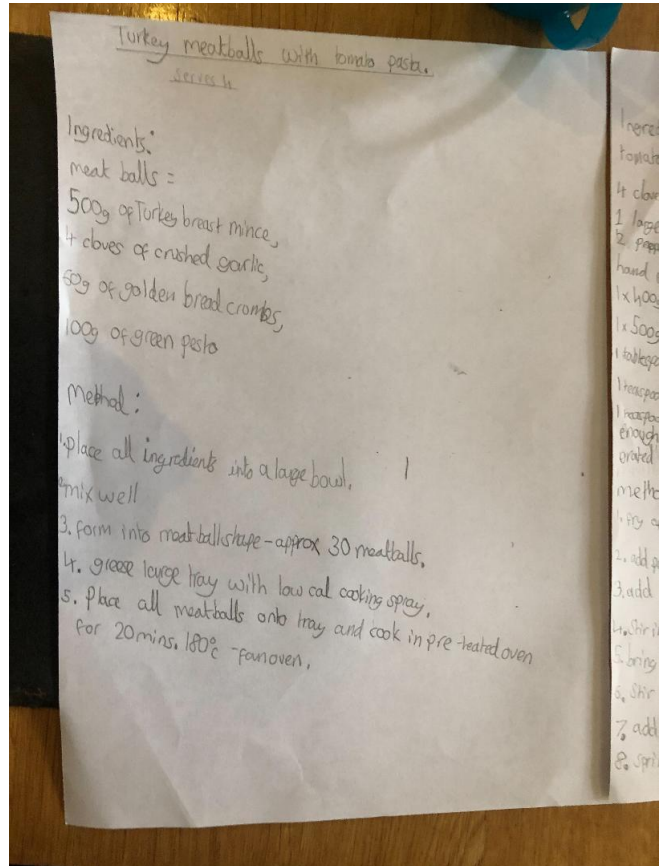 Turkey meatballs with tomato pasta.
Serves 4
Ingredients:
meat balls =
500g of Turkey breast mince,
4 cloves of crushed garlic,
60g of golden bread crombs,
100g of green pesto
Method:
1. place all ingredients into a large bowl.
2. mix well
3. form into meatball shape - approx 30 meatballs.
4. grease large tray with low cal cooking spray.
5. Place all meatballs onto tray and cook in pre-heated oven
for 20mins. 180°c -fan oven.
tomato
4
1 large
2
hand
1x400g
1x500g
1
1
1
enough
grated
1. Fry
2. add
3. add
4. Stir
5. bring
6. Stir
7. add
8.